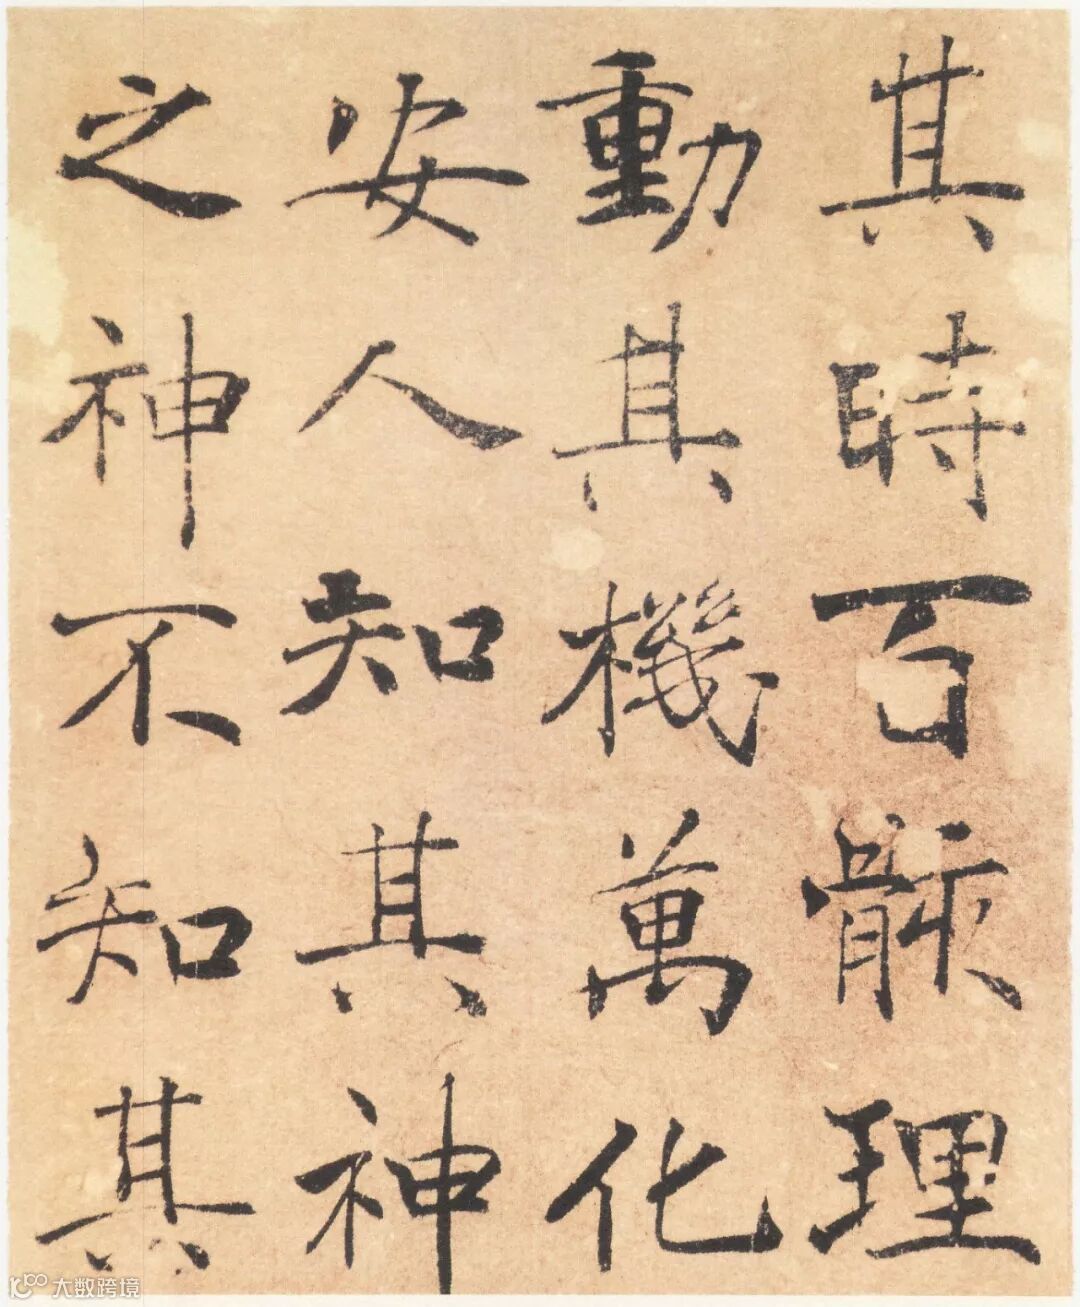 其時百骸理
動其機萬化
安人知其神
之神不知其
大数跨境